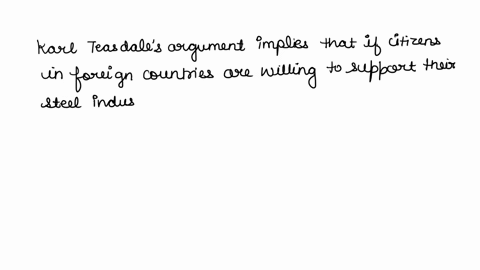 Karl Teasdale's argument implies that if citizens
in foreign countries are willing to support their
steel indus